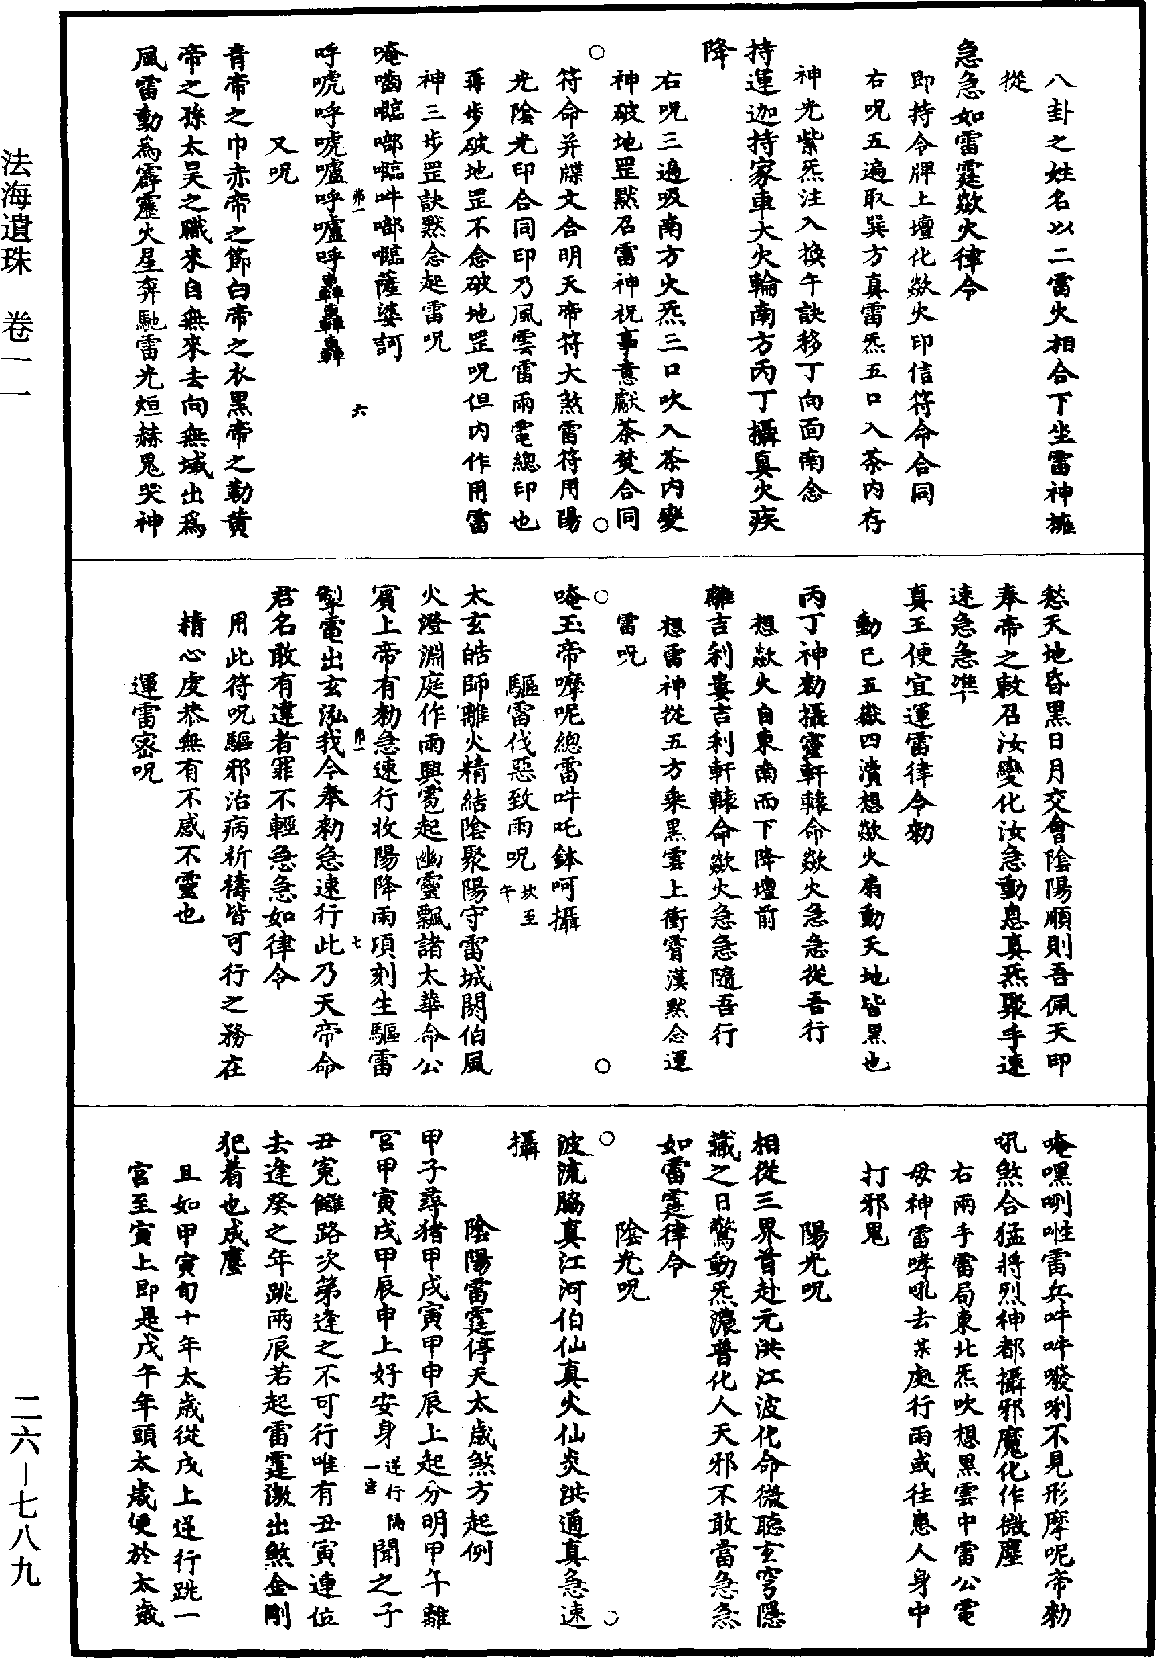 法海遺珠 卷一一
二六—七八九
八卦之姓名以二雷火相合下坐雷神擁
從
急急如雷霆歘火律令
即持令牌上壇化歘火印信符命合同
右呪五遍取巽方真雷炁五口入茶內存
神光紫炁注入換午訣移丁向面南念
持運迦持家車大火輪南方丙丁攝真火疾
降
右呪三遍吸南方火炁三口吹入茶內變
神破地罡默召雷神祝事意獻茶焚合同
符命并牒文合明天帝符大煞雷符用陽
光陰光印合同印乃風雲雷雨電總印也
再步破地罡不念破地罡呪但內作用雷
神三步罡訣默念起雷呪
唵嚙囈啷囈吽啷囈薩婆訶
呼唬呼唬嚧呼嚧呼轟轟轟
又呪
青帝之巾赤帝之飾白帝之衣黑帝之勒黄
帝之孫太昊之職來自無來去向無域出爲
風雷動爲霹靂火星奔馳雷光烜赫鬼哭神
愁天地昏黑日月交會陰陽順則吾佩天印
奉帝之敕召汝變化汝急動息真炁聚手速
速急急準
真王便宜運雷律令勑
動已五嶽四瀆想歘火扇動天地皆黑也
丙丁神勑攝靈軒轅命歘火急急從吾行
想歘火自東南而下降壇前
離吉利婁吉利軒轅命歘火急急隨吾行
想雷神從五方乘黑雲上衝霄漢默念運
雷呪
唵玉帝嚤呢總雷吽吒鉢呵攝
驅雷伐惡致雨呪坎至午
太玄皓師離火精結陰聚陽守雷城閼伯風
火澄淵庭作雨興雹起幽靈飄諸太華命公
賓上帝有勑急速行收陽降雨頃刻生驅雷
掣電出玄泓我今奉勑急速行此乃天帝命
君名敢有違者罪不輕急急如律令
用此符呪驅邪治病祈禱皆可行之務在
精心虔恭無有不感不靈也
運雷密呪
唵嘿唎㗏雷兵吽吽發唎不見形摩呢帝勑
吼煞合猛將烈神都攝邪魔化作微塵
右兩手雷局東北炁吹想黑雲中雷公電
母神雷哮吼去某處行雨或往患人身中
打邪鬼
陽光呪
相從三界首赴元洪江波化命微聽玄穹隱
藏之日驚動炁濃普化人天邪不敢當急急
如雷霆律令
陰光呪
波流腦真江河伯仙真火仙炎洪通真急速
攝
陰陽雷霆停天太歲煞方起例
甲子尋猪甲戌寅甲申辰上起分明甲午離
宮甲寅戌甲辰申上好安身逆行隔一宮聞之子
丑寃讎路次第逢之不可行唯有丑寅連位
去逢癸之年跳兩辰若起雷霆激出煞金剛
犯着也成塵
且如甲寅旬十年太歲從戌上逆行跳一
宮至寅上即是戊午年頭太歲便於太歲